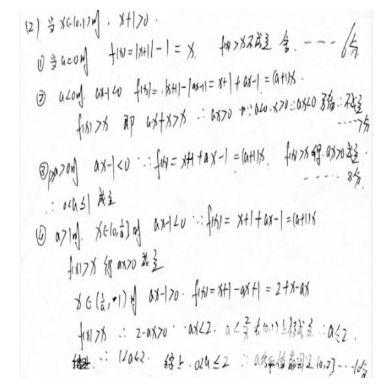 (2) 当 x∈(0,1)时, x+1>0.
① 当a=0时 f(x)=|x+1|-1=x. f(x)>x不成立 舍. ---- 6分
② a<0时 ax-1<0 f(x)=|x+1|-|ax-1|=x+1+ax-1=(a+1)x.
f(x)>x 即 ax+x>x ∴ax>0 ∵a<0, x>0 ∴ax<0 ∴不成立
---- 7分
③ a>0时 ax-1<0 ∴f(x)=x+1+ax-1=(a+1)x. f(x)>x 得 ax>0 成立
---- 8分
∴ 0<a≤1 成立
④ a>1时. 时 ax-1<0 ∴f(x)=x+1+ax-1=(a+1)x
f(x)>x 得 ax>0 成立
时 ax-1>0. f(x)=x+1-ax+1=2+x-ax
f(x)>x ∴2-ax>0 ∴ax<2. a<2/x 在(0,1)上 成立 ∴a≤2.
∴ 1<a≤2. 综上 0<a≤2 ∴ a 的 范围 (0,2] ---10分